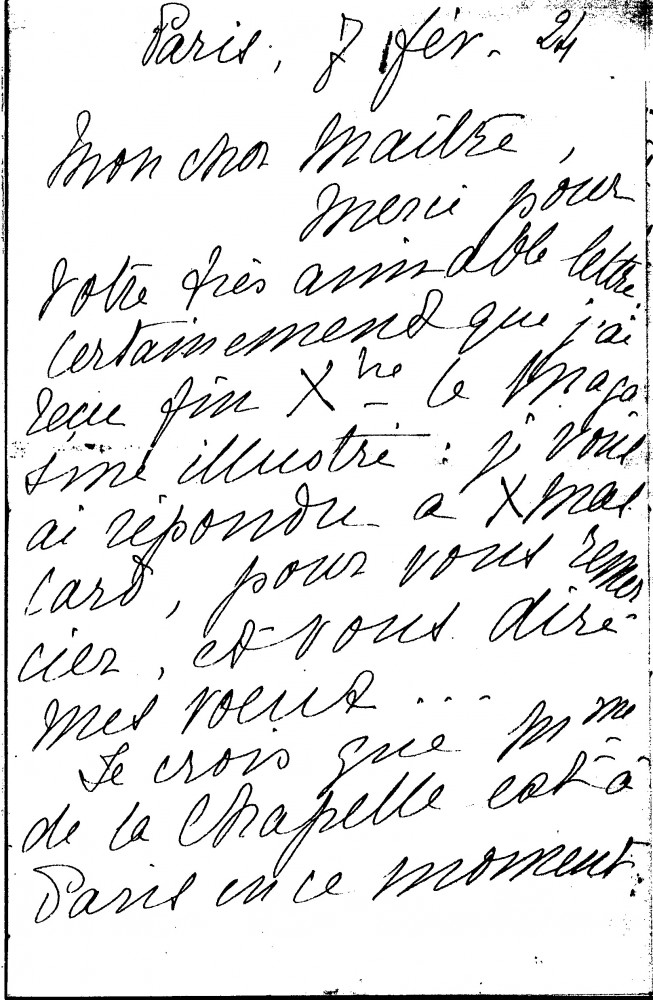 Paris, 7 fév. 24
Mon cher Maître,
Merci pour
votre très aimable lettre.
Certainement que j'ai
reçu fin Xbre le Maga
sine illustré : j' vous
ai répondu a Xmas
Card, pour vous remer
cier, et vous dire
mes voeux ...
Je crois que Mme
de la Chapelle est à
Paris en ce moment.